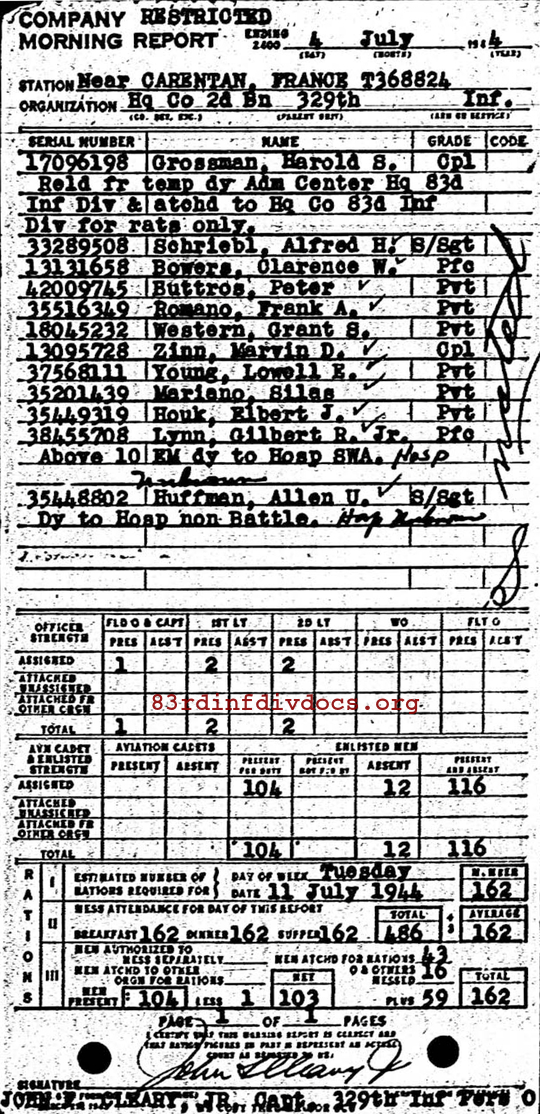 COMPANY RESTRICTED
MORNING REPORT ENDING 2400 4 July 1944
(DAY) (MONTH) (YEAR)
STATION Near CARENTAN, FRANCE T368824
ORGANIZATION Hq Co 2d Bn 329th Inf.
(CO. DET, ETC.) (PARENT UNIT) (ARM OR SERVICE)
SERIAL NUMBER NAME GRADE CODE
17096198 Grossman, Harold S. Cpl
Reld fr temp dy Adm Center Hq 83d
Inf Div & atchd to Hq Co 83d Inf
Div for rats only.
33289508 Schriebl, Alfred H. S/Sgt
13131658 Bowers, Clarence W. Pfc
42009745 Buttros, Peter Pvt
35516349 Romano, Frank A. Pvt
18045232 Western, Grant S. Pvt
13095728 Zinn, Marvin D. Cpl
37568111 Young, Lowell E. Pvt
35201439 Mariano, Silas Pvt
35449319 Houk, Elbert J. Pvt
38455708 Lynn, Gilbert R. Jr. Pfc
Above 10 EM dy to Hosp SWA. Hosp
Unknown
35448802 Huffman, Allen U. S/Sgt
Dy to Hosp non Battle. Hosp Unknown
OFFICER STRENGTH FLD O & CAPT 1ST LT 2D LT WO FLT O
PRES ABS'T PRES ABS'T PRES ABS'T PRES ABS'T PRES ABS'T
ASSIGNED 1 2 2
ATTACHED UNASSIGNED
ATTACHED FR OTHER ORGN
83rdinfdivdocs.org
TOTAL 1 2 2
AVN CADET & ENLISTED STRENGTH AVIATION CADETS ENLISTED MEN
PRESENT ABSENT PRESENT FOR DUTY PRESENT NOT F/D DY ABSENT PRESENT AND ABSENT
ASSIGNED 104 12 116
ATTACHED UNASSIGNED
ATTACHED FR OTHER ORGN
TOTAL 104 12 116
RATIONS
I ESTIMATED NUMBER OF RATIONS REQUIRED FOR DAY OF WEEK Tuesday NUMBER
DATE 11 July 1944 162
II MESS ATTENDANCE FOR DAY OF THIS REPORT TOTAL ÷3 AVERAGE
BREAKFAST 162 DINNER 162 SUPPER 162 486 162
III MEN AUTHORIZED TO MESS SEPARATELY MEN ATCHD FOR RATIONS 43
MEN ATCHD TO OTHER ORGN FOR RATIONS NET O & OTHERS MESSED 16 TOTAL
MEN PRESENT 104 LESS 1 103 PLUS 59 162
PAGE 1 OF 1 PAGES
I CERTIFY THAT THIS MORNING REPORT IS CORRECT AND
THAT RATION FIGURES IN PART III REPRESENT AN ACTUAL
COUNT AS REPORTED TO ME:
SIGNATURE
JOHN F. CLEARY JR, Capt, 329th Inf Pers O